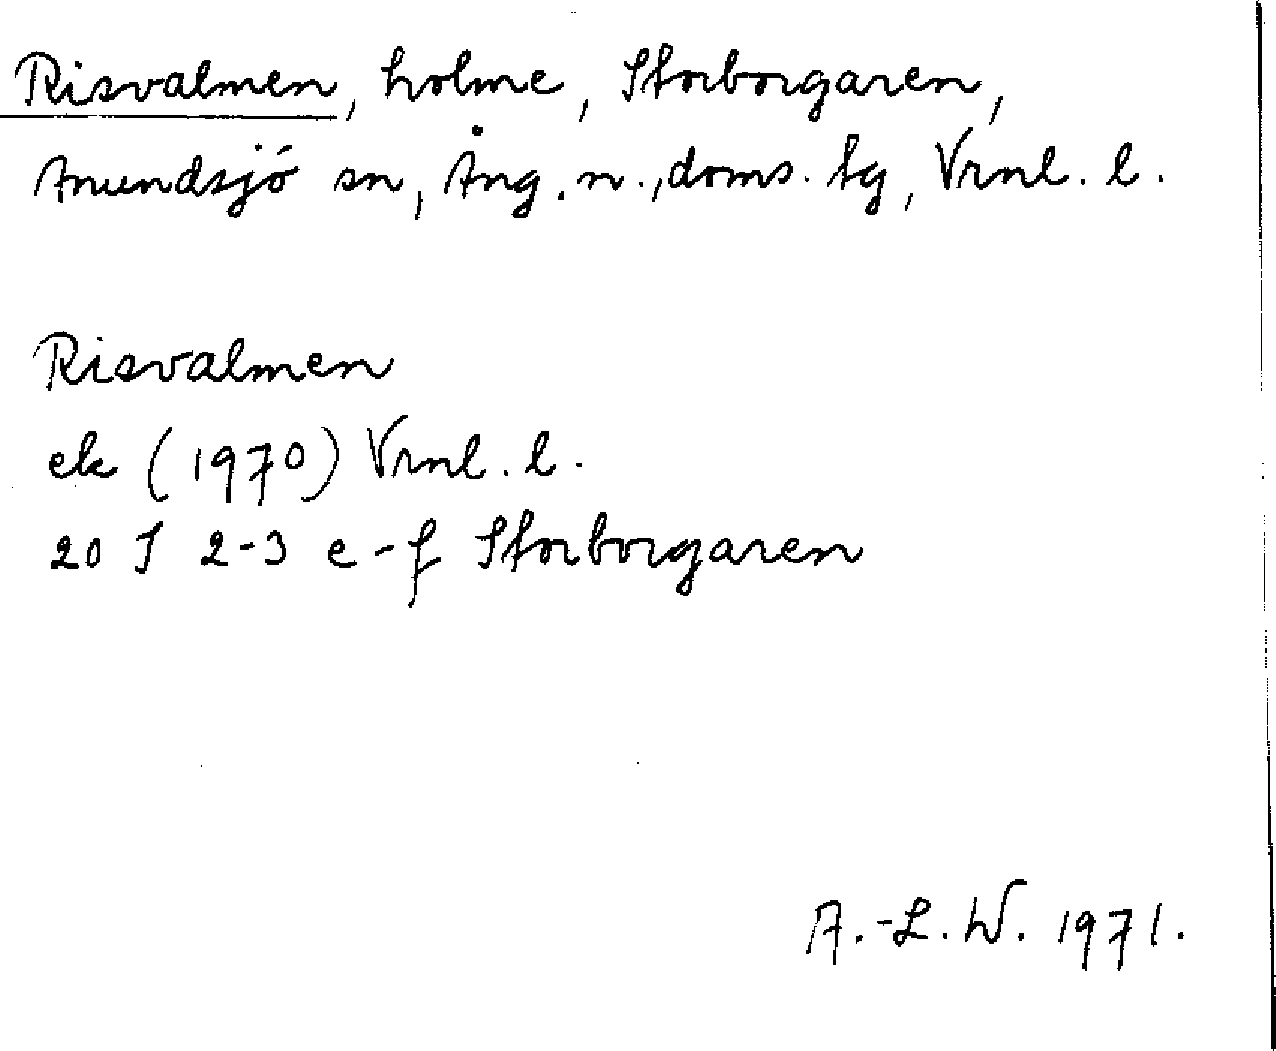 Risvalmen, holme, Storborgaren,
Anundsjö sn, Ång. n., doms. tg, Vrnl. l.
Risvalmen
ek (1970) Vrnl. l.
20 J 2-3 e-f Storborgaren
A.-L. W. 1971.